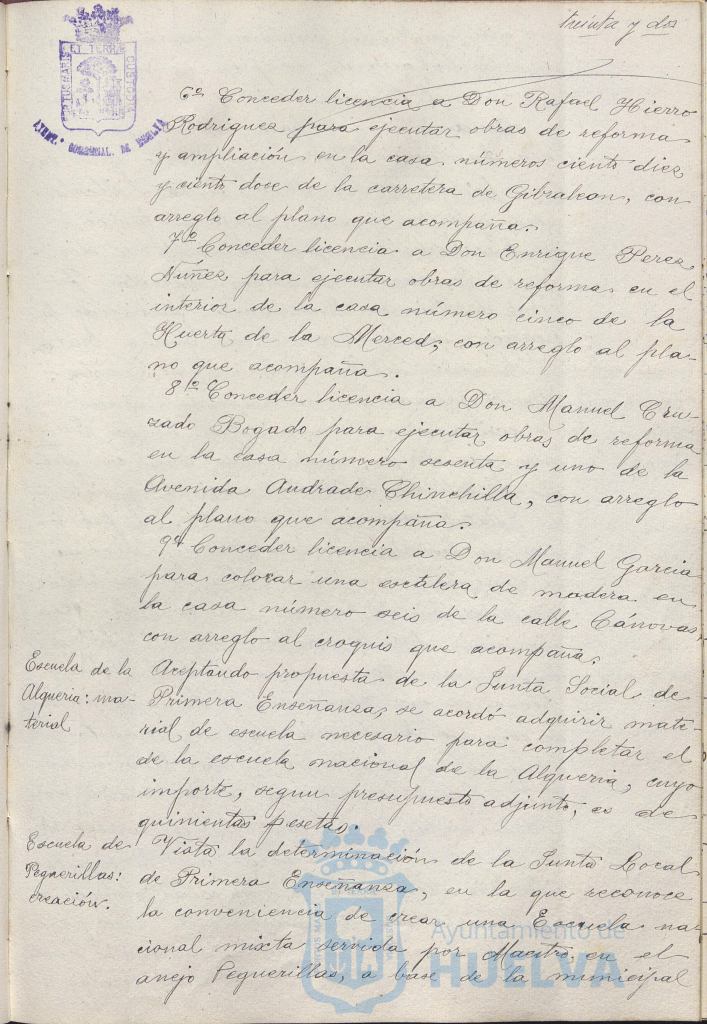 treinta y dos
PORTUS MARIS ET TERRAE CUSTODIA
AYTMO. CONSTNAL. DE HUELVA
6º Conceder licencia a Don Rafael Hierro
Rodriguez para ejecutar obras de reforma
y ampliación en la casa números ciento diez
y ciento doce de la carretera de Gibraleon, con
arreglo al plano que acompaña.
7º Conceder licencia a Don Enrique Perez
Nuñez para ejecutar obras de reforma en el
interior de la casa número cinco de la
Huerta de la Merced, con arreglo al pla-
no que acompaña.
8º Conceder licencia a Don Manuel Cru-
zado Bogado para ejecutar obras de reforma
en la casa número sesenta y uno de la
Avenida Andrade Chinchilla, con arreglo
al plano que acompaña.
9º Conceder licencia a Don Manuel Garcia
para colocar una escalera de madera en
la casa número seis de la calle Cánovas,
con arreglo al croquis que acompaña.
Escuela de la
Alqueria: ma-
terial
Aceptando propuesta de la Junta Social de
Primera Enseñanza, se acordó adquirir mate-
rial de escuela necesario para completar el
de la escuela nacional de la Alqueria, cuyo
importe, segun presupuesto adjunto, es de
quinientas pesetas.
Escuela de
Peguerillas:
creación.
Vista la determinación de la Junta Local
de Primera Enseñanza, en la que reconoce
la conveniencia de crear una Escuela na-
cional mixta servida por Maestro, en el
anejo Peguerillas, a base de la municipal
Ayuntamiento de
HUELVA